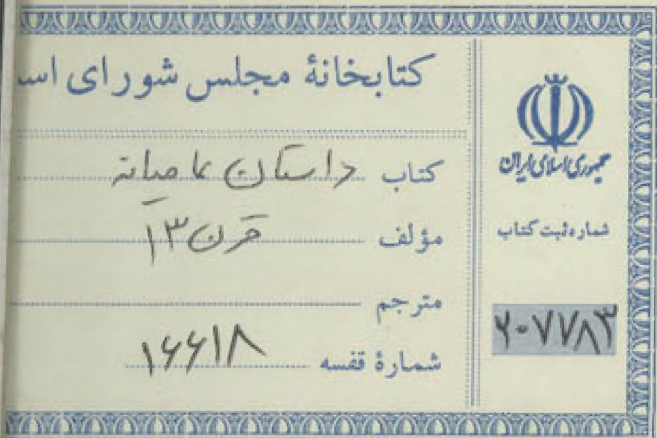 کتابخانهٔ مجلس شورای اسـ
جمهوری اسلامی ایران
کتاب داستان عامیانه
مؤلف قرن ۱۳
مترجم
شمارهٔ قفسه ۱۶۶۱۸
شماره ثبت کتاب
۲۰۷۷۸۳